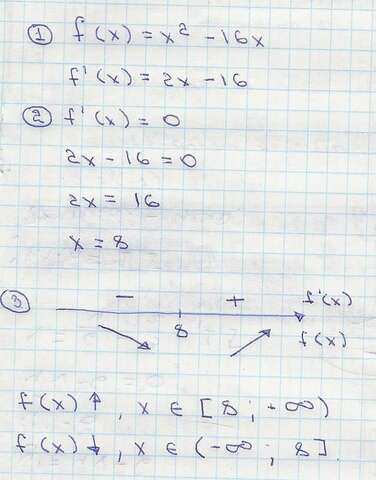 ① f(x) = x² - 16x
f'(x) = 2x - 16
② f'(x) = 0
2x - 16 = 0
2x = 16
x = 8
③ - + f'(x)
8 f(x)
f(x) ↑, x ∈ [8; +∞)
f(x) ↓, x ∈ (-∞; 8].